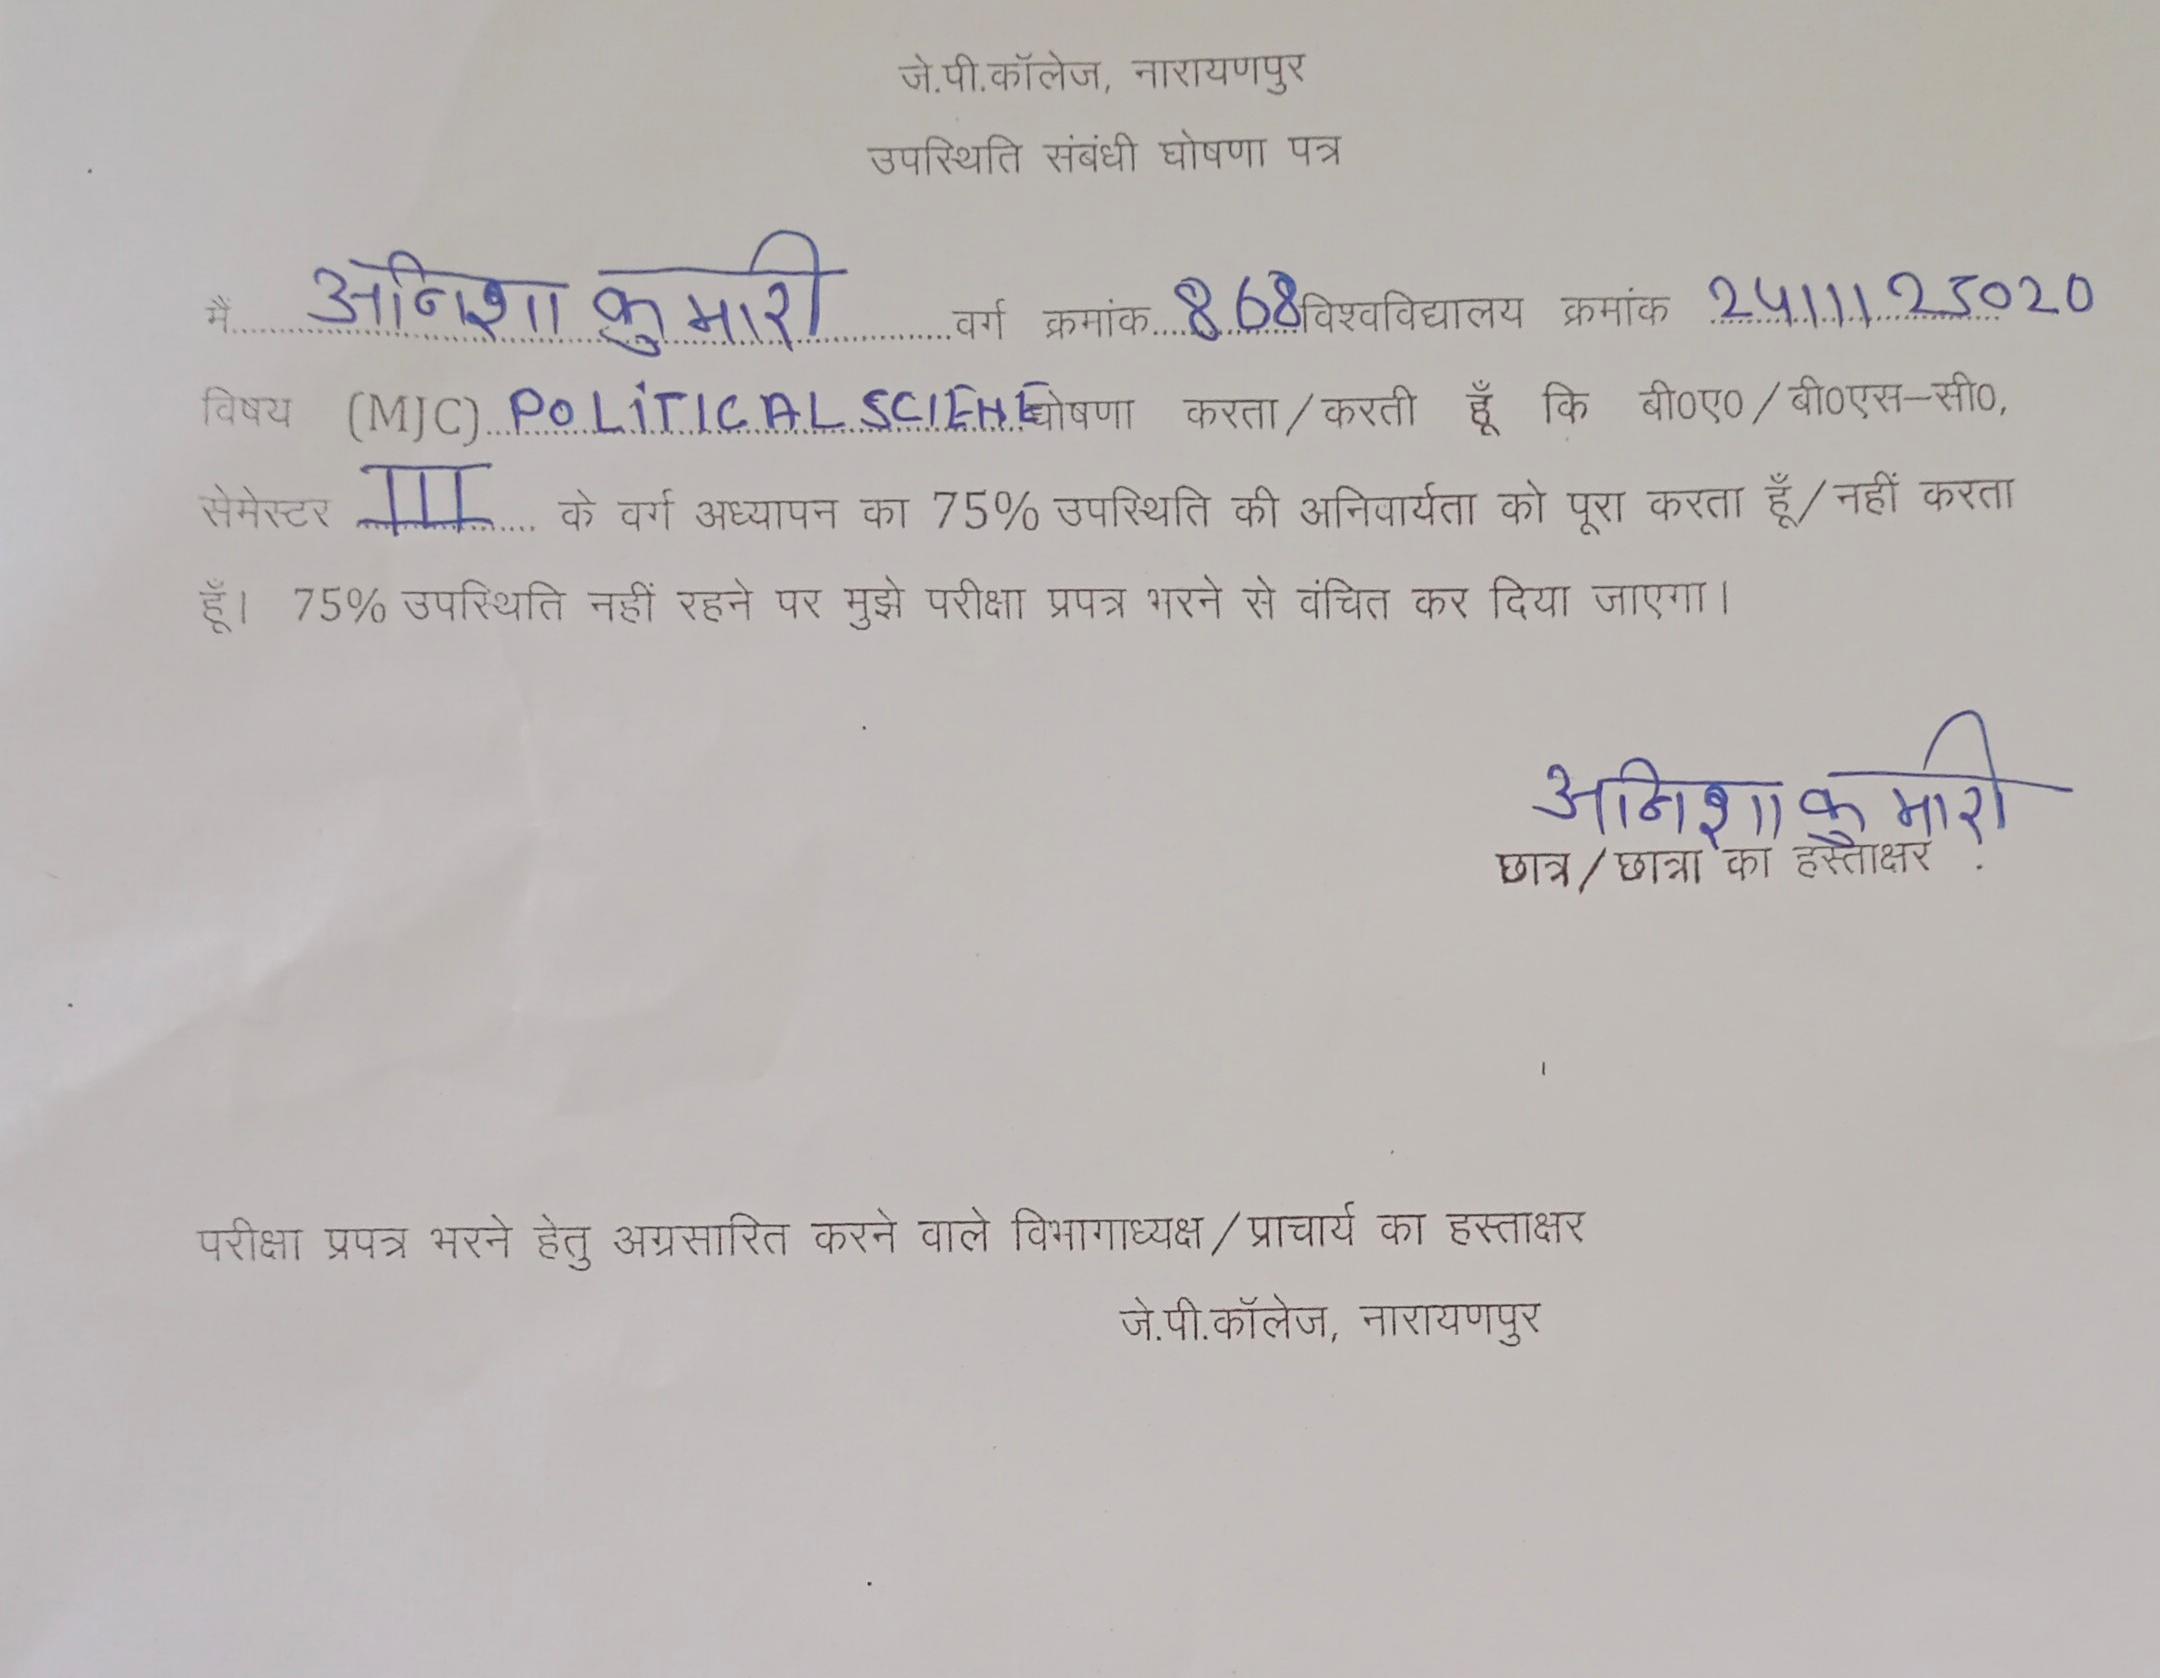 जे.पी.कॉलेज, नारायणपुर
उपस्थिति संबंधी घोषणा पत्र
मैं अनिशा कुमारी वर्ग क्रमांक 868 विश्वविद्यालय क्रमांक 2411125020
विषय (MJC) POLITICAL SCIENE घोषणा करता/करती हूँ कि बी०ए०/बी०एस-सी०,
सेमेस्टर III के वर्ग अध्यापन का 75% उपस्थिति की अनिवार्यता को पूरा करता हूँ/नहीं करता
हूँ। 75% उपस्थिति नहीं रहने पर मुझे परीक्षा प्रपत्र भरने से वंचित कर दिया जाएगा।
अनिशा कुमारी
छात्र/छात्रा का हस्ताक्षर
परीक्षा प्रपत्र भरने हेतु अग्रसारित करने वाले विभागाध्यक्ष/प्राचार्य का हस्ताक्षर
जे.पी.कॉलेज, नारायणपुर